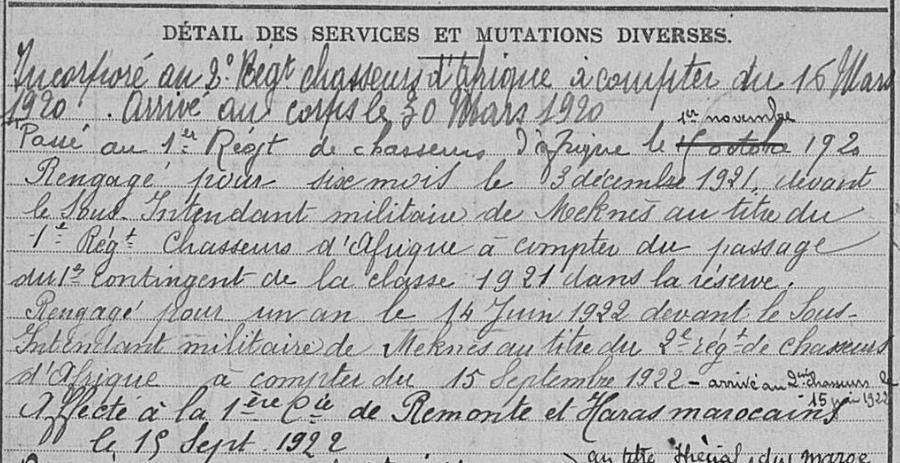 DÉTAIL DES SERVICES ET MUTATIONS DIVERSES.
Incorporé au 2e Régt chasseurs d'Afrique à compter du 16 Mars
1920. Arrivé au corps le 30 Mars 1920
1er novembre
Passé au 1er Régt de chasseurs d'Afrique le 1 octobre 1920
Rengagé pour six mois le 3 décembre 1921, devant
le Sous-Intendant militaire de Meknès au titre du
1e Régt Chasseurs d'Afrique à compter du passage
du 1er contingent de la classe 1921 dans la réserve.
Rengagé pour un an le 14 Juin 1922 devant le Sous-
Intendant militaire de Meknès au titre du 2e régt de chasseurs
d'Afrique à compter du 15 Septembre 1922 - arrivé au 2me chasseurs le
15 juin 1922
Affecté à la 1ère Cie de Remonte et Haras marocains
le 15 Sept. 1922
au titre du maroc